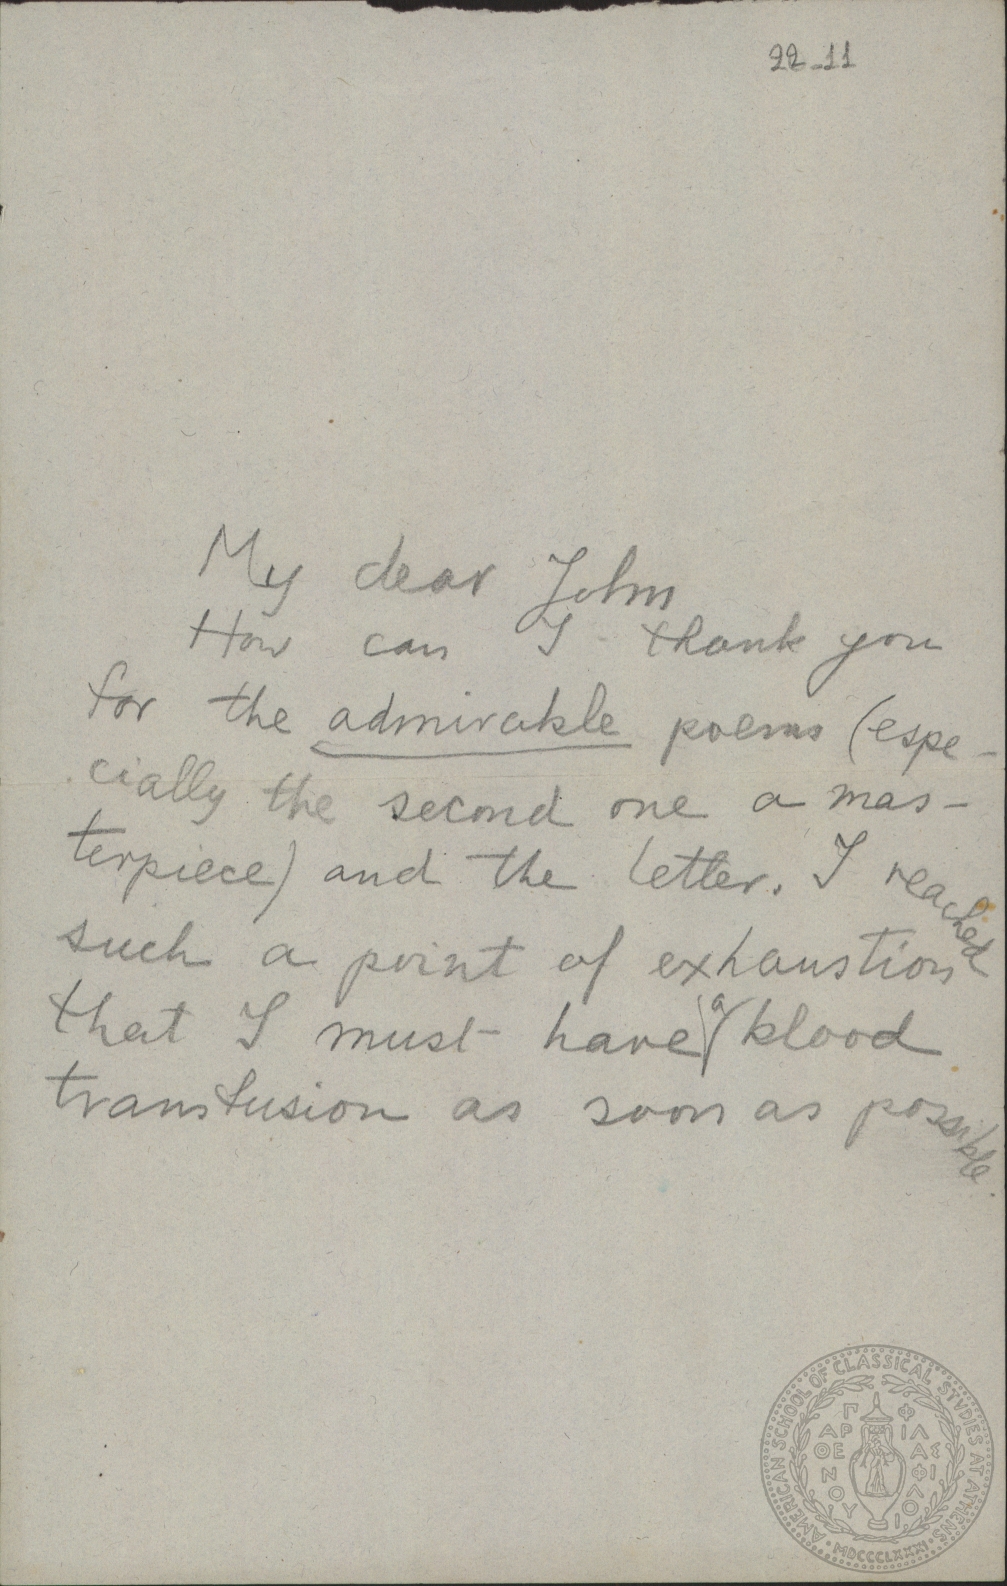 22-11
My dear John
How can I thank you
for the admirable poems (espe-
cially the second one a mas-
terpiece) and the letter. I reached
such a point of exhaustion
that I must have a blood
transfusion as soon as possible.
AMERICAN SCHOOL OF CLASSICAL STUDIES AT ATHENS
ΠΑΡΘΕΝΟΥ ΦΙΛΑΣ ΦΙΛΙΟ
MDCCCLXXXI